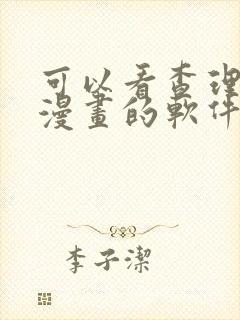 可以看查理
漫畫的軟件
李子潔